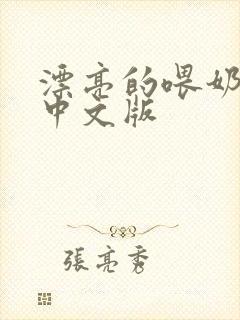 漂亮的喂奶
中文版
張亮秀